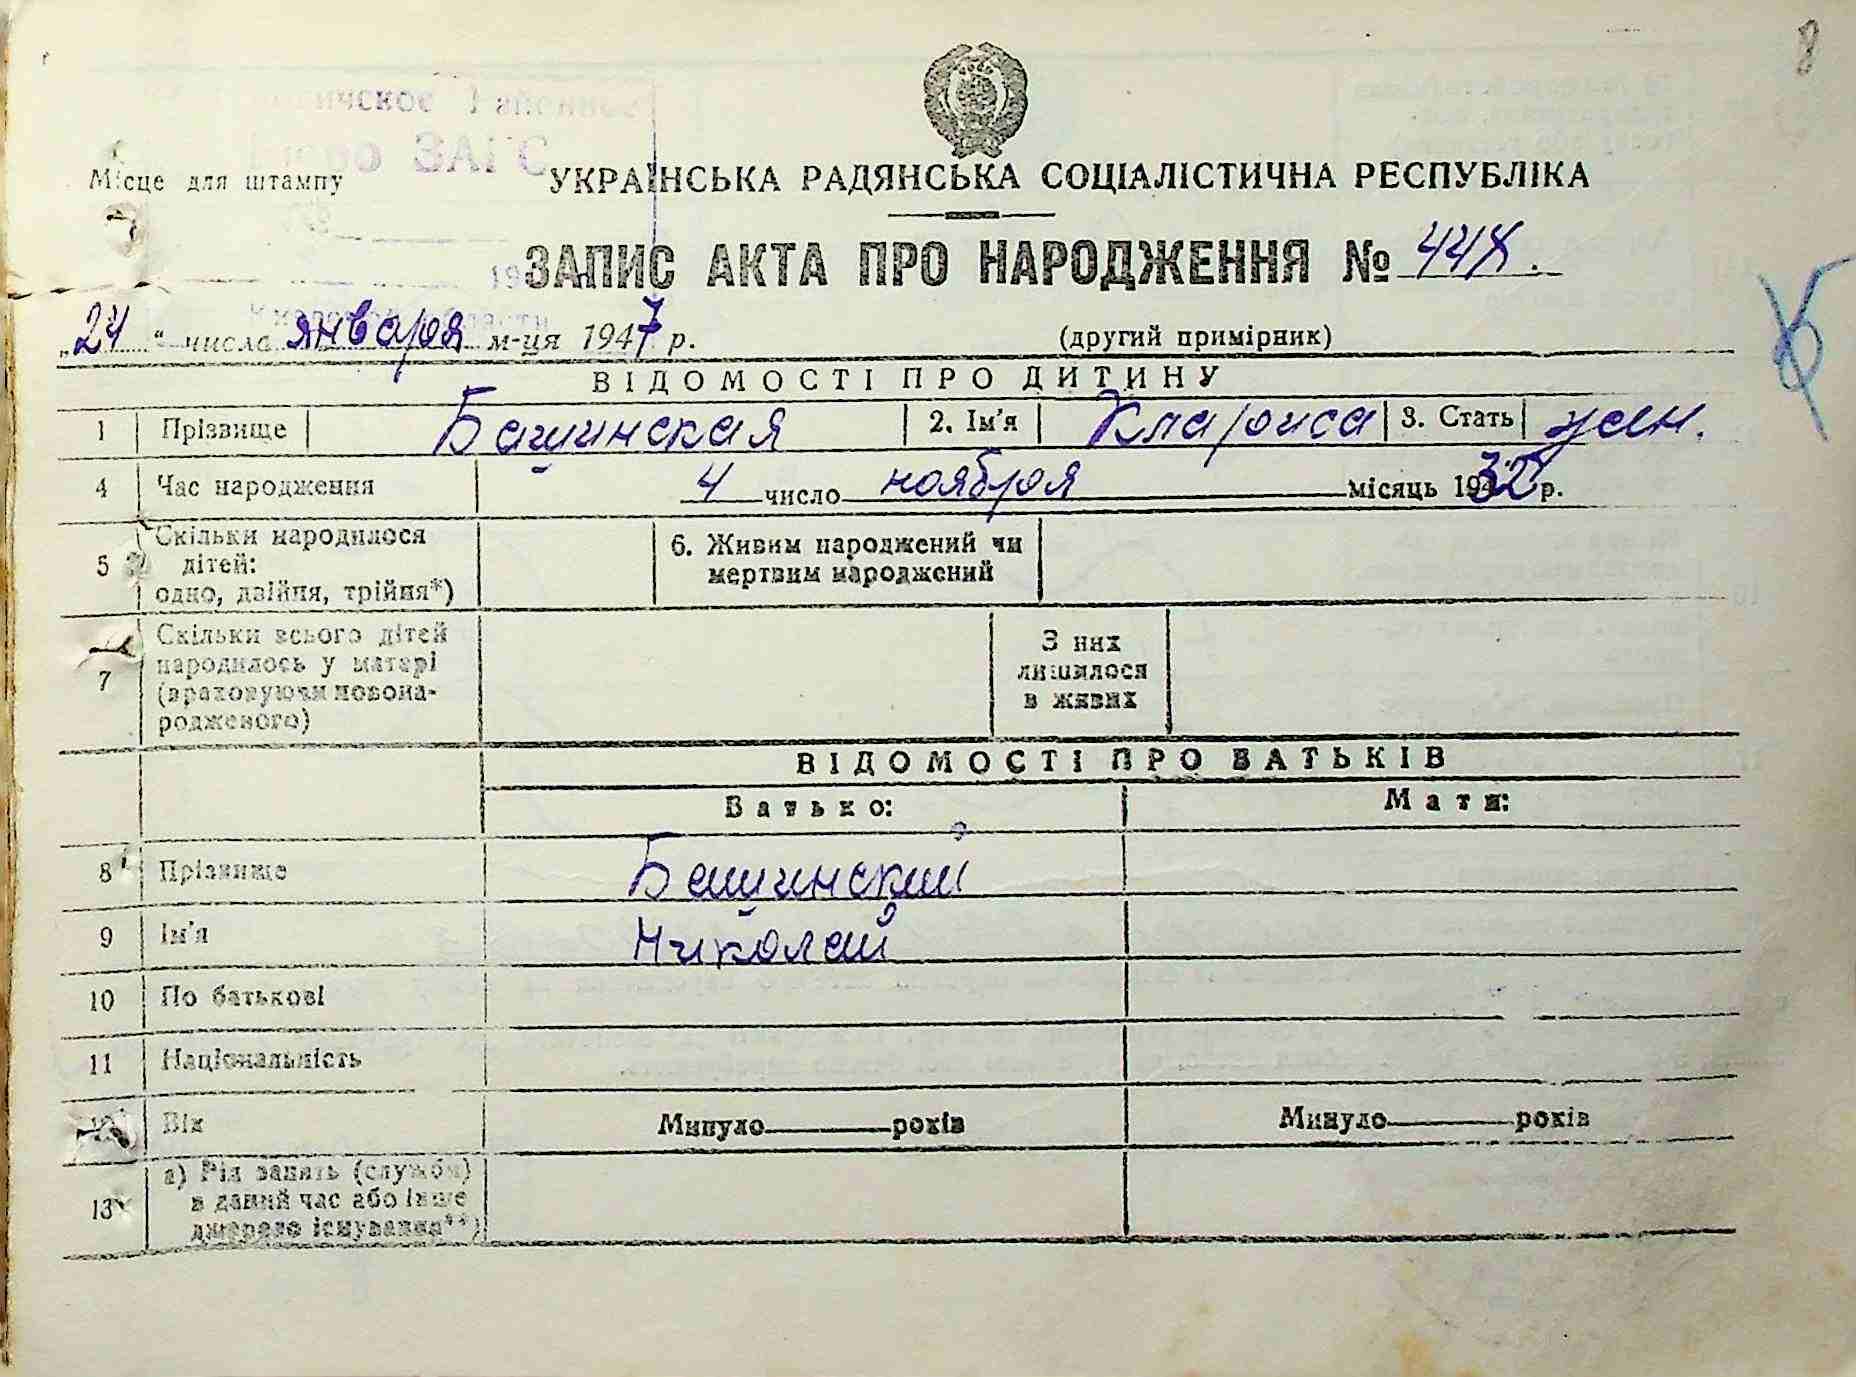 8
Районное
Бюро ЗАГС
Місце для штампу
УКРАЇНСЬКА РАДЯНСЬКА СОЦІАЛІСТИЧНА РЕСПУБЛІКА
ЗАПИС АКТА ПРО НАРОДЖЕННЯ №
„24“ числа января м-ця 1947 р. (другий примірник)
ВІДОМОСТІ ПРО ДИТИНУ
1 Прізвище Башинская 2. Ім'я Клариса 3. Стать жен.
4 Час народження 4 число ноября місяць 1932 р.
5 Скільки народилося дітей: одно, двійня, трійня*) 6. Живим народжений чи мертвим народжений
7 Скільки всього дітей народилось у матері (враховуючи новонародженого) З них лишилося в живих
ВІДОМОСТІ ПРО БАТЬКІВ
Батько: Мати:
8 Прізвище Башинский
9 Ім'я Николай
10 По батькові
11 Національність
12 Вік Минуло років Минуло років
13 а) Рід занять (служби) в даний час або інше джерело існування**)